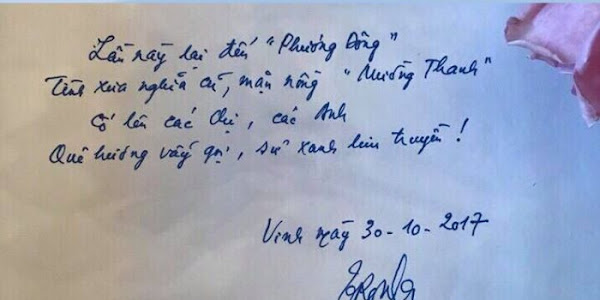 Lần này lại đến "Phương Đông"
Tình xưa nghĩa cũ, mặn nồng "Mường Thanh"
Cố lên các chị, các Anh
Quê hương vẫy gọi, sử xanh lưu truyền!
Vinh ngày 30-10-2017